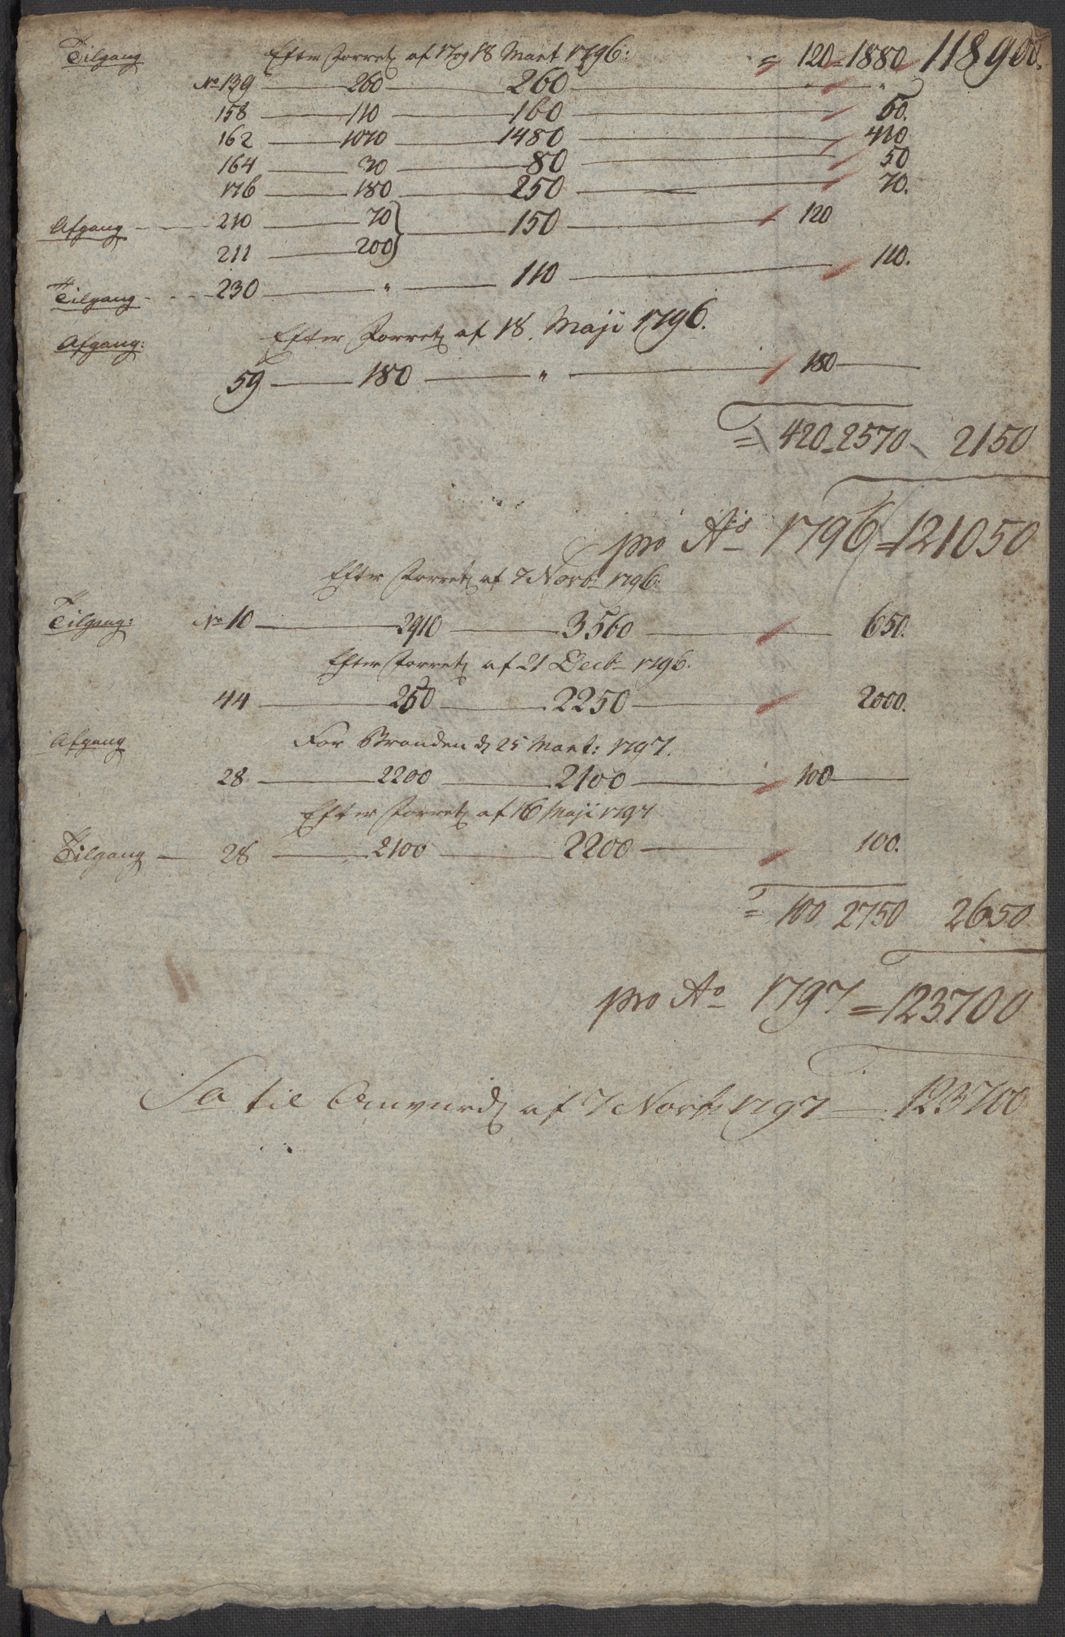 Tilgang Efter Forretn af 17 og 18 Mart 1796: = 120 = 1880 118900.
No 139 — 260 — 260 — "
158 — 110 — 160 — 50.
162 — 1070 — 1480 — 410
164 — 30 — 80 — 50
176 — 180 — 250 — 70.
Afgang — 210 — 70 } 150 — 120
211 — 200 }
Tilgang — 230 — " — 110 — 110.
Afgang: Efter Forretn af 18. Maji 1796.
59 — 180 — " — 180 —
= 420 = 2570 2150
pro Ao 1796 = 121050
Efter Forretn af 7 Novb 1796:
Tilgang: No 10 — 2910 — 3560 — 650.
Efter Forretn af 21 Decb 1796.
44 — 250 — 2250 — 2000.
Afgang For Branden d 25 Mart: 1797.
28 — 2200 — 2100 — 100 —
Efter Forretn af 16 Maji 1797
Tilgang — 28 — 2100 — 2200 — 100.
= 100 2750 2650
pro Ao 1797 = 123700
Sa til Omvurd af 7 Novb 1797 — 123700